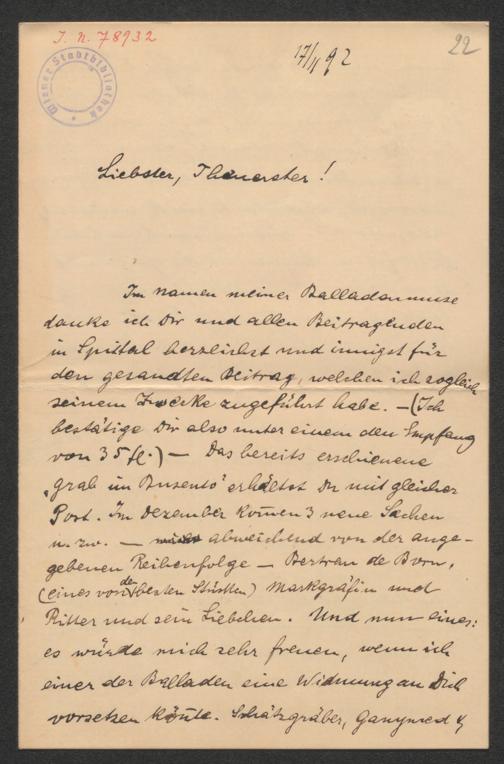 I. N. 78932
22
17/11 92
Wiener Stadtbibliothek
Liebster, Theuerster!
Im Namen meiner Balladenmuse
danke ich Dir und allen Beitragenden
in Spittal herzlichst und innigst für
den gesandten Beitrag, welchen ich sogleich
seinem Zwecke zugeführt habe. – (Ich
bestätige Dir also unter einem den Empfang
von 35 fl.) – Das bereits erschienene
„Grab im Busento" erhältst Du mit gleicher
Post. Im Dezember kom̄en 3 neue Sachen
u. zw. – abweichend von der ange-
gebenen Reihenfolge – Bertran de Born,
(eines von den besten Stücken) Markgräfin und
Ritter und sein Liebchen. Und nun eines:
es würde mich sehr freuen, wenn ich
einer der Balladen eine Widmung an Dich
vorsetzen könnte. Schatzgräber, Ganymed &